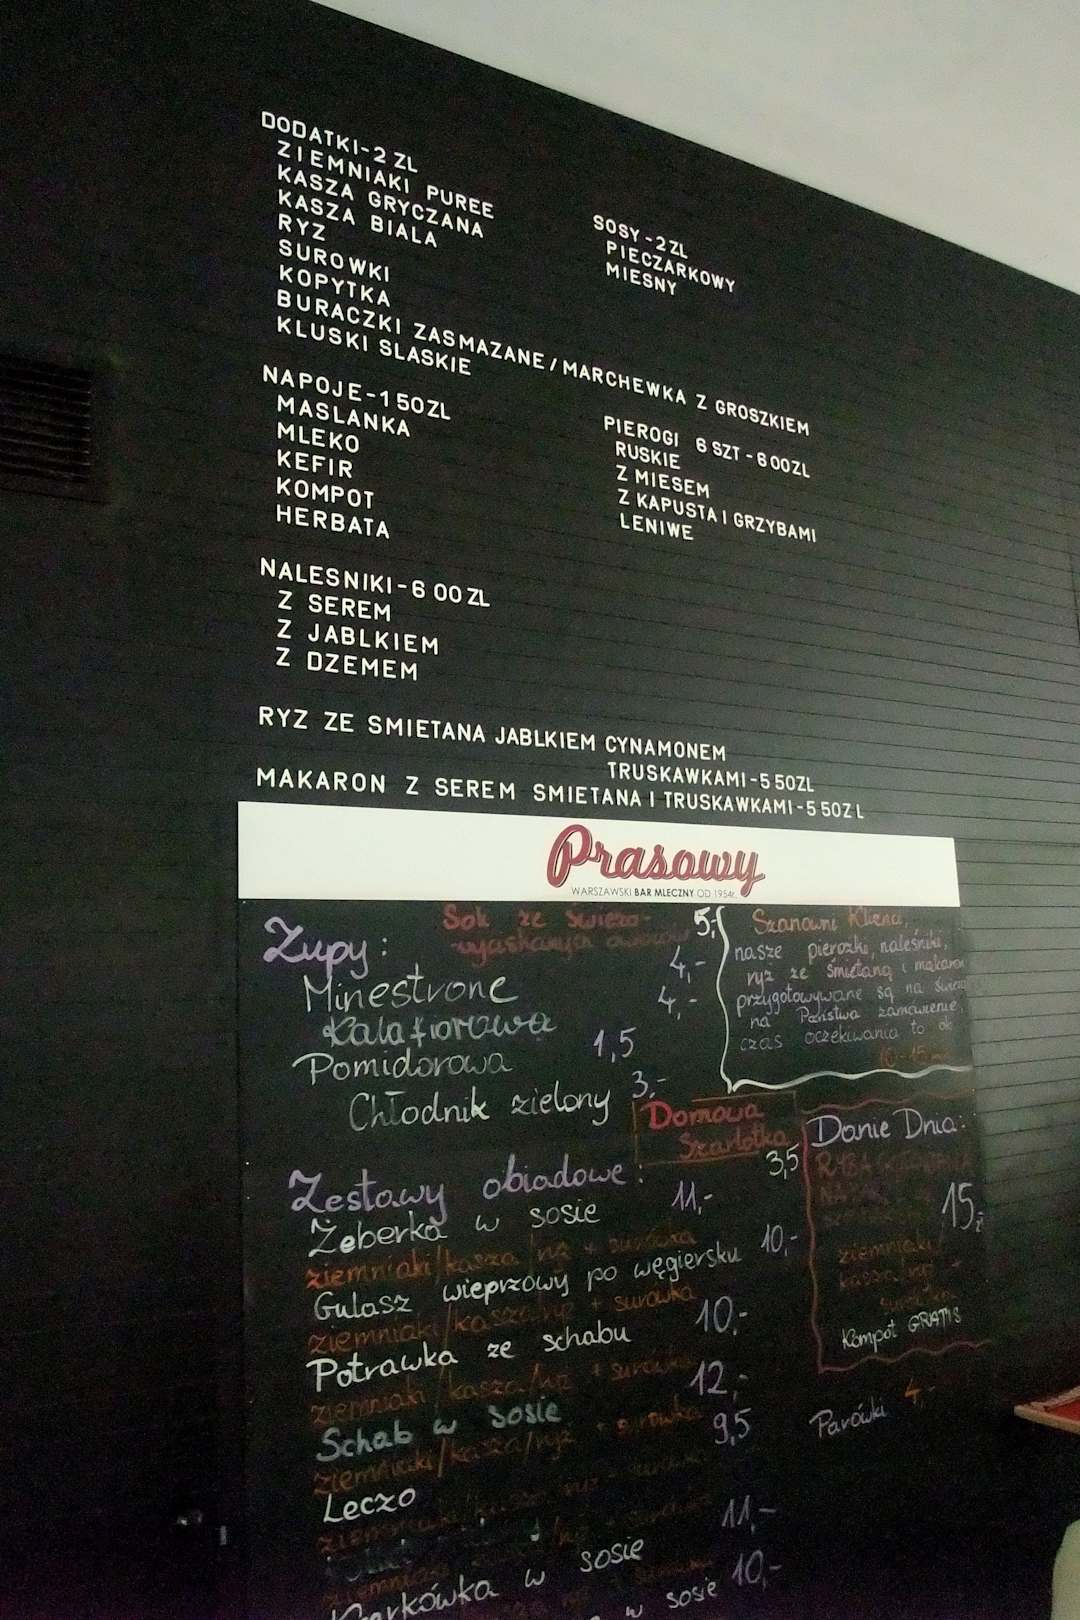 DODATKI-2 ZL
ZIEMNIAKI PUREE
KASZA GRYCZANA
KASZA BIALA
RYZ
SUROWKI
KOPYTKA
BURACZKI ZASMAZANE / MARCHEWKA Z GROSZKIEM
KLUSKI SLASKIE
SOSY-2 ZL
PIECZARKOWY
MIESNY
NAPOJE-1 50ZL
MASLANKA
MLEKO
KEFIR
KOMPOT
HERBATA
PIEROGI 6 SZT - 6 00ZL
RUSKIE
Z MIESEM
Z KAPUSTA I GRZYBAMI
LENIWE
NALESNIKI-6 00 ZL
Z SEREM
Z JABLKIEM
Z DZEMEM
RYZ ZE SMIETANA JABLKIEM CYNAMONEM
TRUSKAWKAMI-5 50ZL
MAKARON Z SEREM SMIETANA I TRUSKAWKAMI-5 50Z L
Prasowy
WARSZAWSKI BAR MLECZNY OD 1954r.
Sok ze świeżo- 5,-
Zupy:
Minestrone 4,-
Kalafiorowa 4,-
Pomidorowa 1,5
Chłodnik zielony 3,-
Szanowni
nasze pierożki, naleśniki,
ryż ze śmietaną i makaron
przygotowywane są na
na Państwa zamówienie,
czas oczekiwania to ok
10-15
Domowa
Szarlotka
3,5
Danie Dnia:
15,-
ziemniaki/
kasza/ryż +
Kompot GRATIS
Zestawy obiadowe:
Żeberka w sosie 11,-
ziemniaki/kasza/ryż + surówka
Gulasz wieprzowy po węgiersku 10,-
ziemniaki/kasza/ryż + surówka
Potrawka ze schabu 10,-
ziemniaki/kasza/ryż + surówka
Schab w sosie 12,-
ziemniaki/kasza/ryż + surówka
Leczo 9,5
Parówki 4,-
Karkówka w sosie 11,-
w sosie 10,-